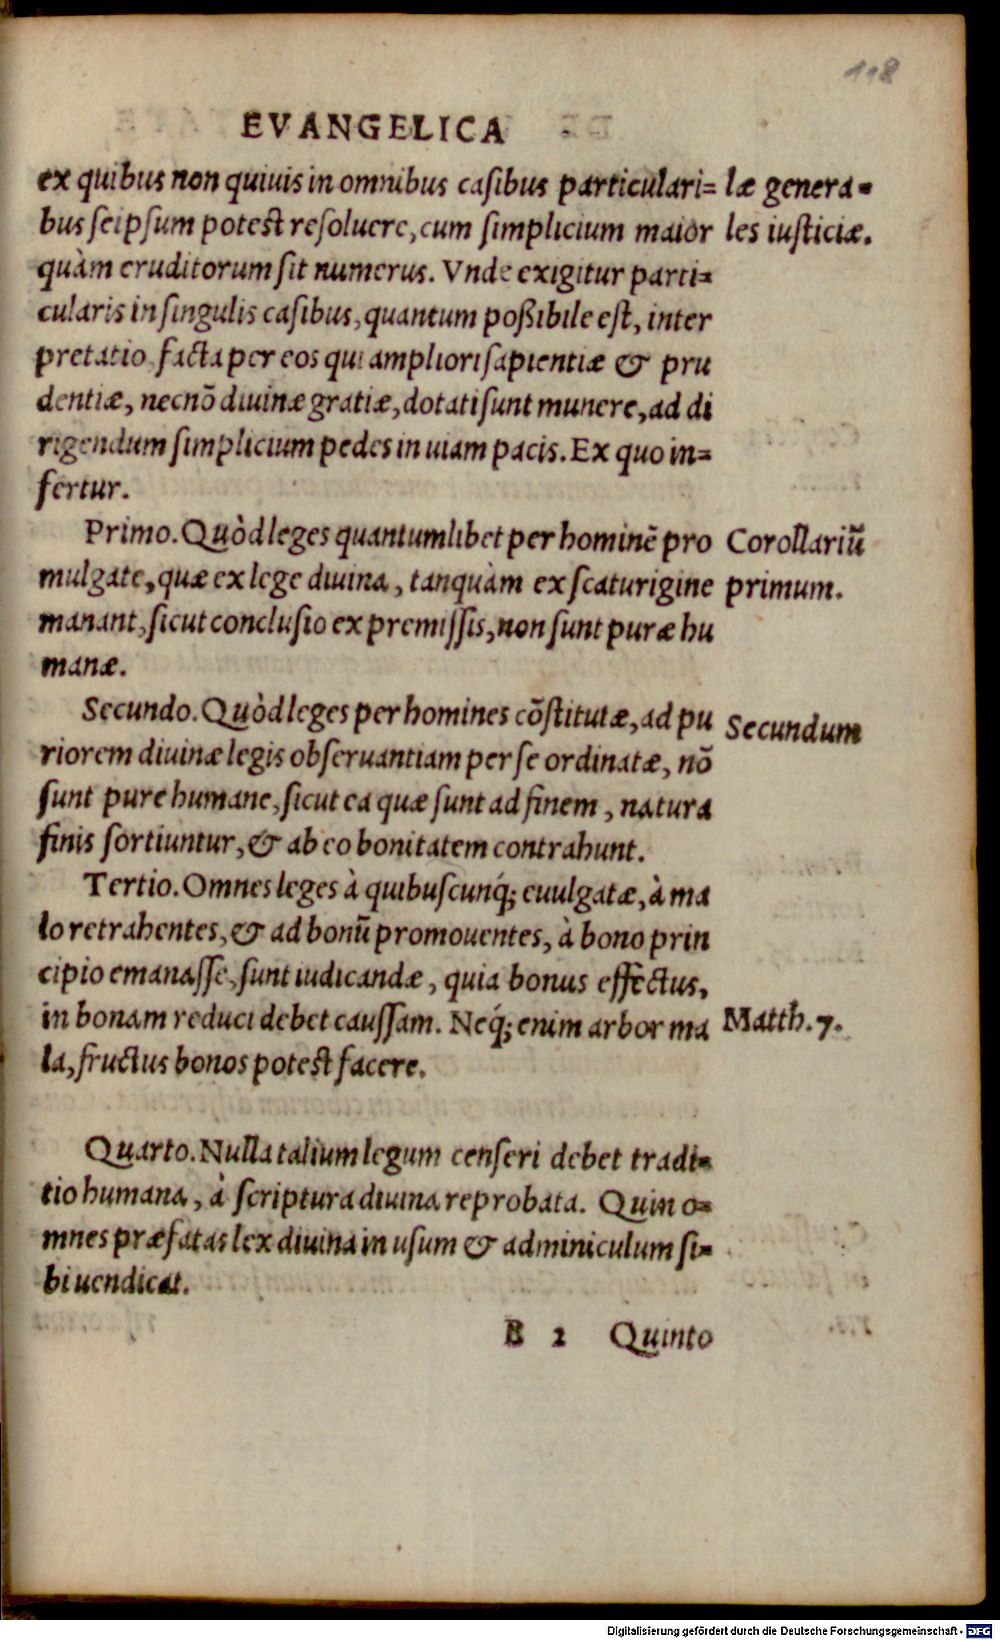 118
EVANGELICA
ex quibus non quiuis in omnibus casibus particulari=
bus seipsum potest resoluere, cum simplicium maior
quàm eruditorum sit numerus. Vnde exigitur parti=
cularis in singulis casibus, quantum poßibile est, inter
pretatio facta per eos qui ampliori sapientiæ & pru
dentiæ, necnō diuinæ gratiæ, dotati sunt munere, ad di
rigendum simplicium pedes in uiam pacis. Ex quo in=
fertur.
læ genera=
les iusticiæ.
Primo. Quòd leges quantumlibet per hominē pro
mulgate, quæ ex lege diuina, tanquàm ex scaturigine
manant, sicut conclusio ex premissis, non sunt puræ hu
manæ.
Corollariū
primum.
Secundo. Quòd leges per homines cōstitutæ, ad pu
riorem diuinæ legis obseruantiam per se ordinatæ, nō
sunt pure humane, sicut ea quæ sunt ad finem, natura
finis sortiuntur, & ab eo bonitatem contrahunt.
Secundum
Tertio. Omnes leges à quibuscunq́; euulgatæ, à ma
lo retrahentes, & ad bonū promouentes, à bono prin
cipio emanasse, sunt iudicandæ, quia bonus effectus,
in bonam reduci debet caussam. Neq́; enim arbor ma
la, fructus bonos potest facere.
Matth. 7.
Quarto. Nulla talium legum censeri debet tradi=
tio humana, à scriptura diuina reprobata. Quin o=
mnes præfatas lex diuina in usum & adminiculum si=
bi uendicat.
B 2 Quinto
Digitalisierung gefördert durch die Deutsche Forschungsgemeinschaft - DFG